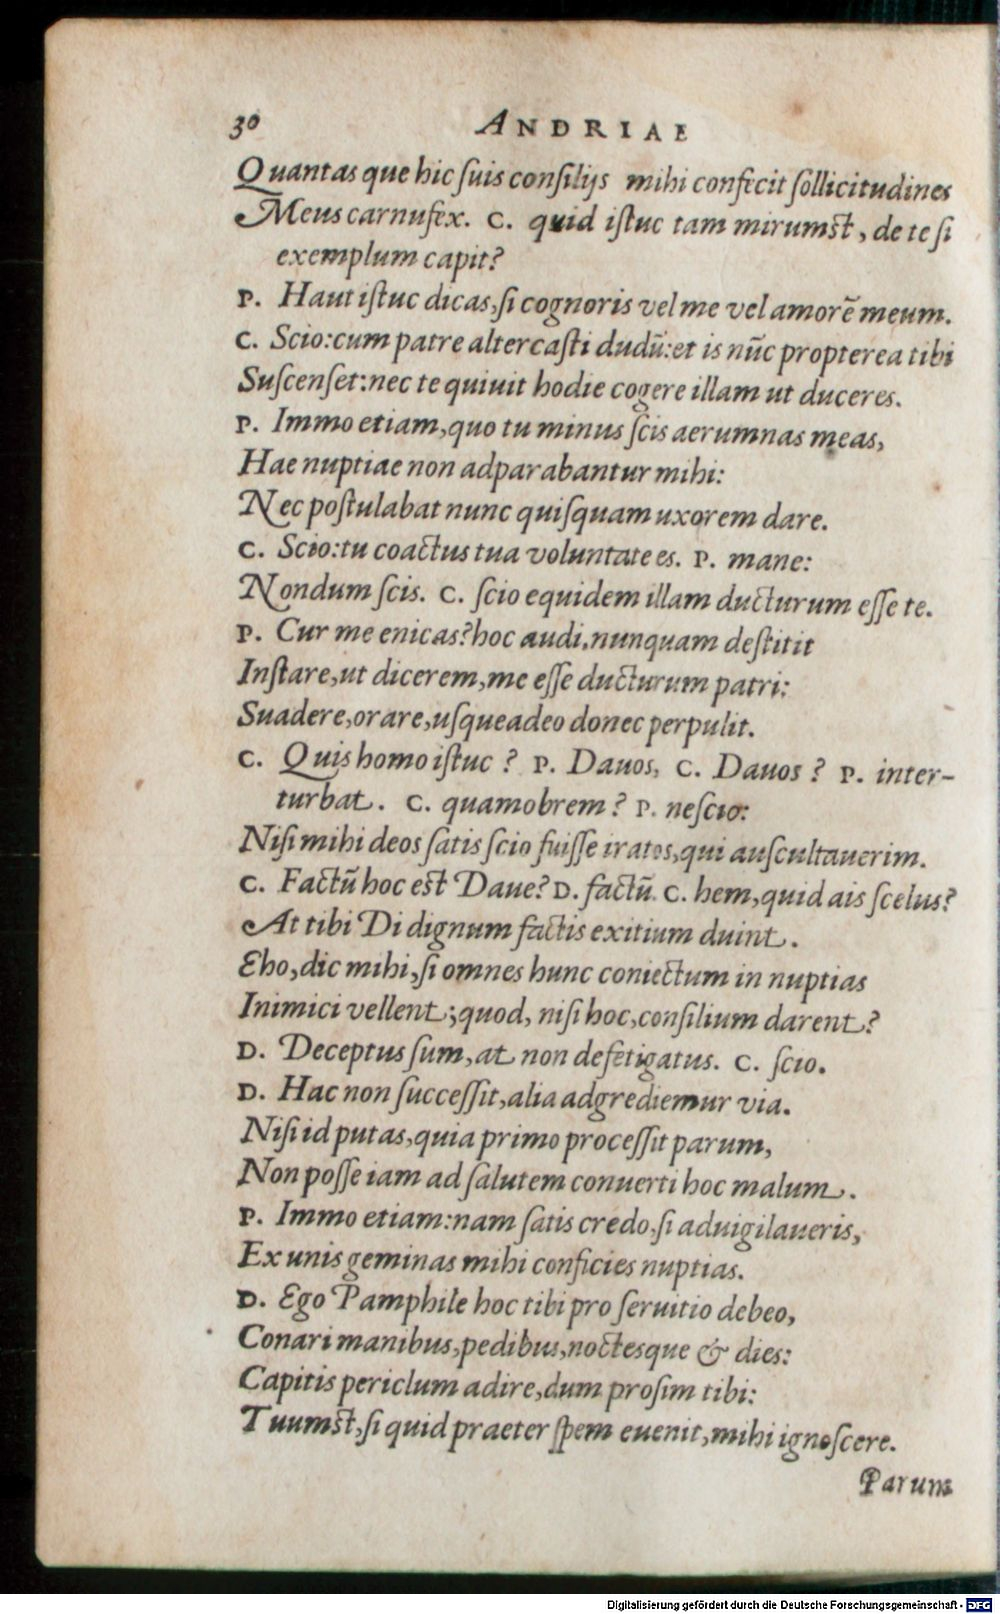 30 ANDRIAE
Quantas que hic ſuis conſilijs mihi confecit ſollicitudines
Meus carnufex. C. quid iſtuc tam mirumſt, de te ſi
exemplum capit?
P. Haut iſtuc dicas, ſi cognoris vel me vel amorē meum.
C. Scio: cum patre altercaſti dudū: et is nūc propterea tibi
Suſcenſet: nec te quiuit hodie cogere illam ut duceres.
P. Immo etiam, quo tu minus ſcis aerumnas meas,
Hae nuptiae non adparabantur mihi:
Nec poſtulabat nunc quiſquam uxorem dare.
C. Scio: tu coactus tua voluntate es. P. mane:
Nondum ſcis. C. ſcio equidem illam ducturum eſſe te.
P. Cur me enicas? hoc audi, nunquam deſtitit
Inſtare, ut dicerem, me eſſe ducturum patri:
Suadere, orare, uſqueadeo donec perpulit.
C. Quis homo iſtuc? P. Dauos, C. Dauos? P. inter-
turbat. C. quamobrem? P. neſcio:
Niſi mihi deos ſatis ſcio fuiſſe iratos, qui auſcultauerim.
C. Factū hoc eſt Daue? D. factū. C. hem, quid ais ſcelus?
At tibi Di dignum factis exitium duint.
Eho, dic mihi, ſi omnes hunc coniectum in nuptias
Inimici vellent; quod, niſi hoc, conſilium darent?
D. Deceptus ſum, at non defetigatus. C. ſcio.
D. Hac non ſucceſſit, alia adgrediemur via.
Niſi id putas, quia primo proceſſit parum,
Non poſſe iam ad ſalutem conuerti hoc malum.
P. Immo etiam: nam ſatis credo, ſi aduigilaueris,
Ex unis geminas mihi conficies nuptias.
D. Ego Pamphile hoc tibi pro ſeruitio debeo,
Conari manibus, pedibus, noctesque & dies:
Capitis periclum adire, dum proſim tibi:
Tuumſt, ſi quid praeter ſpem euenit, mihi ignoſcere.
Parum
Digitalisierung gefördert durch die Deutsche Forschungsgemeinschaft - DFG